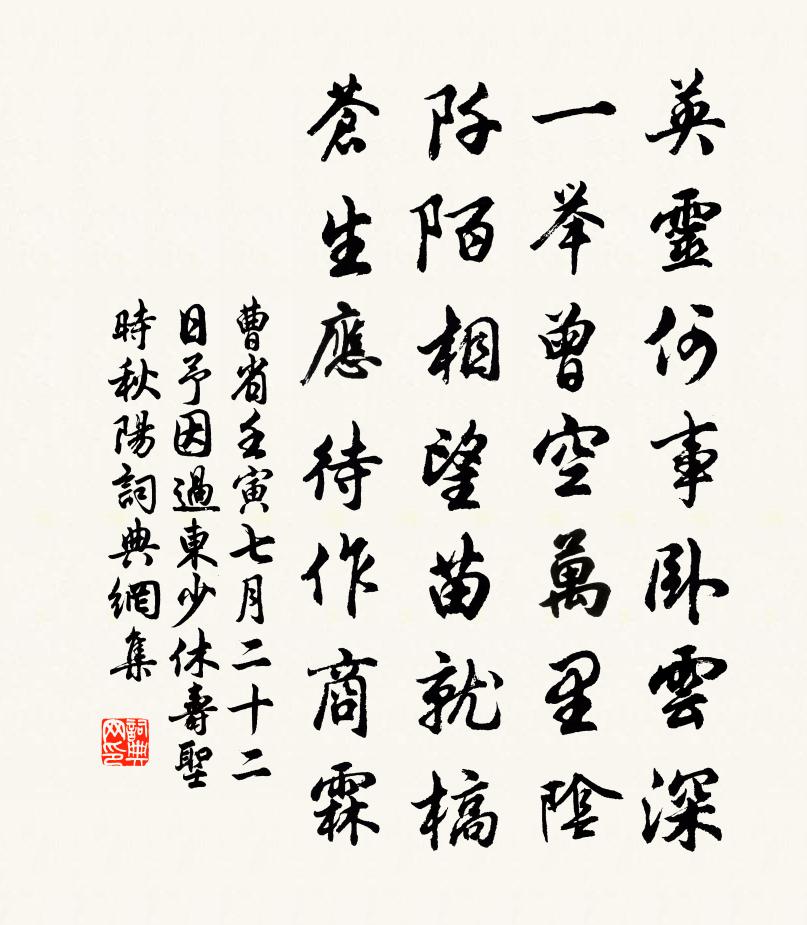 英靈何事臥雲深
一举曾空萬里陰
阡陌相望苗就槁
蒼生應待作商霖
曹省壬寅七月二十二
日予因過東少休壽聖
時秋陽詞典網集
詞典网印